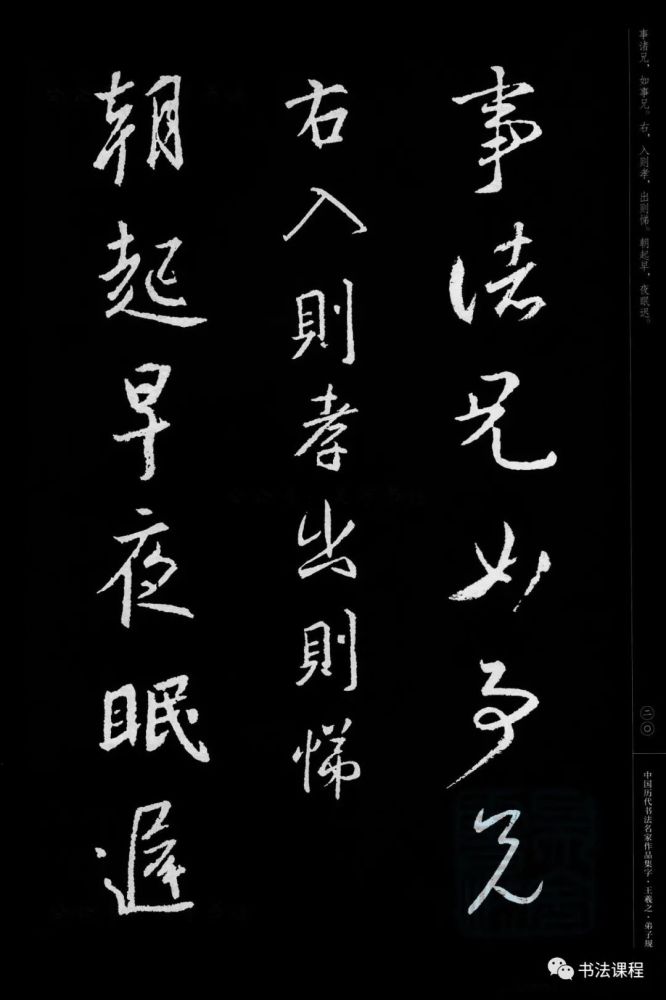 事諸兄如事兄
右入則孝出則悌
朝起早夜眠遲
事诸兄，如事兄。右，入则孝，出则悌。朝起早，夜眠迟。
二〇
中国历代书法名家作品集字·王羲之·弟子规
书法课程